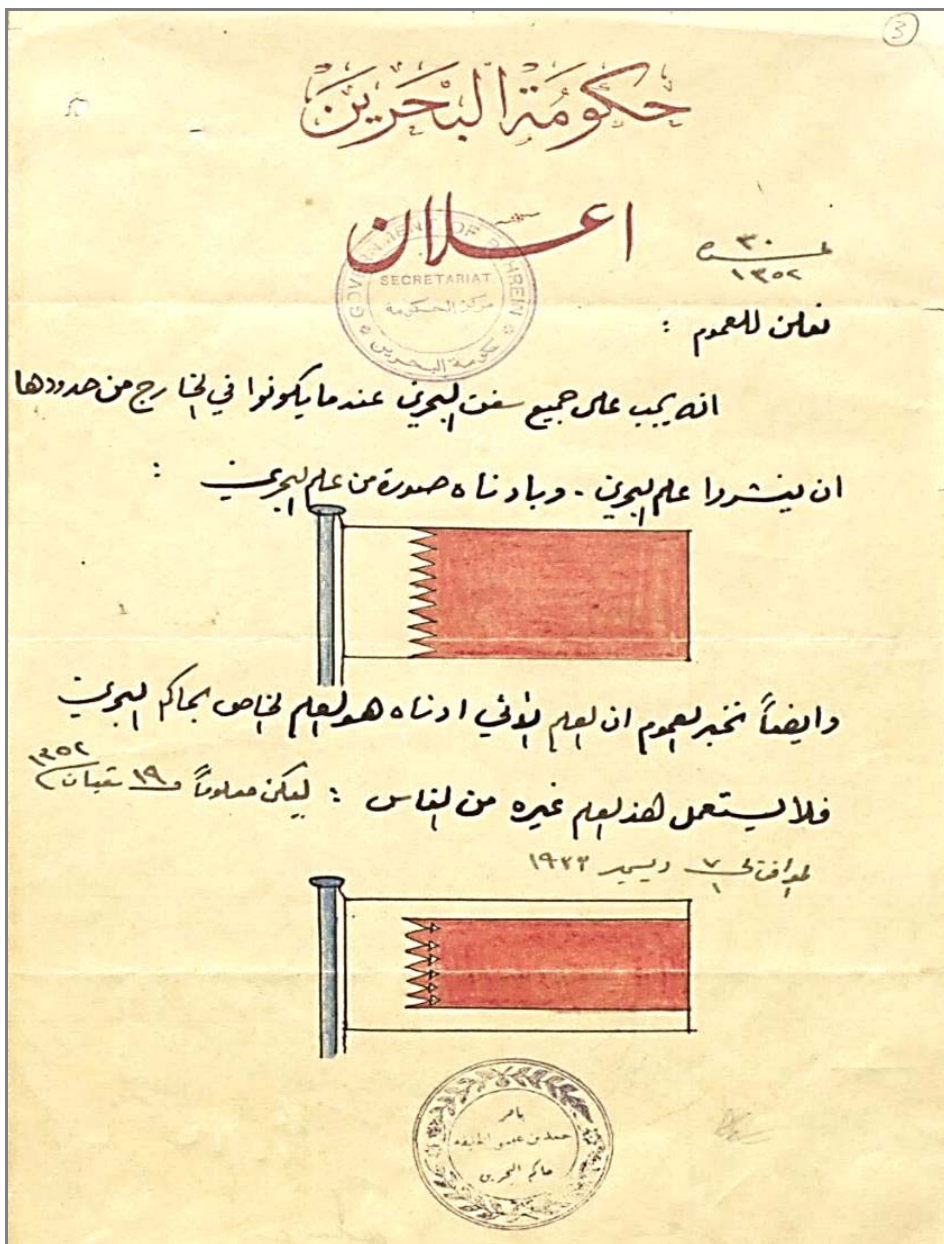 3
حكومة البحرين
اعلان
GOVERNMENT OF BAHREIN
SECRETARIAT
مركز الحكومة
حكومة البحرين
نمرة ٣٠
١٣٥٢
نعلن للعموم :
انه يجب على جميع سفن البحرين عندما يكونوا في الخارج من حدودها
ان ينشروا علم البحرين - وبادناه صورة من علم البحرين :
وايضاً نخبر العموم ان العلم الآتي ادناه هو العلم الخاص بحاكم البحرين
فلا يستعمل هذا العلم غيره من الناس : ليكن معلوماً ١٩ شعبان ١٣٥٢
الموافق ٧ ديسمبر ١٩٣٣
بامر
حمد بن عيسى الخليفه
حاكم البحرين